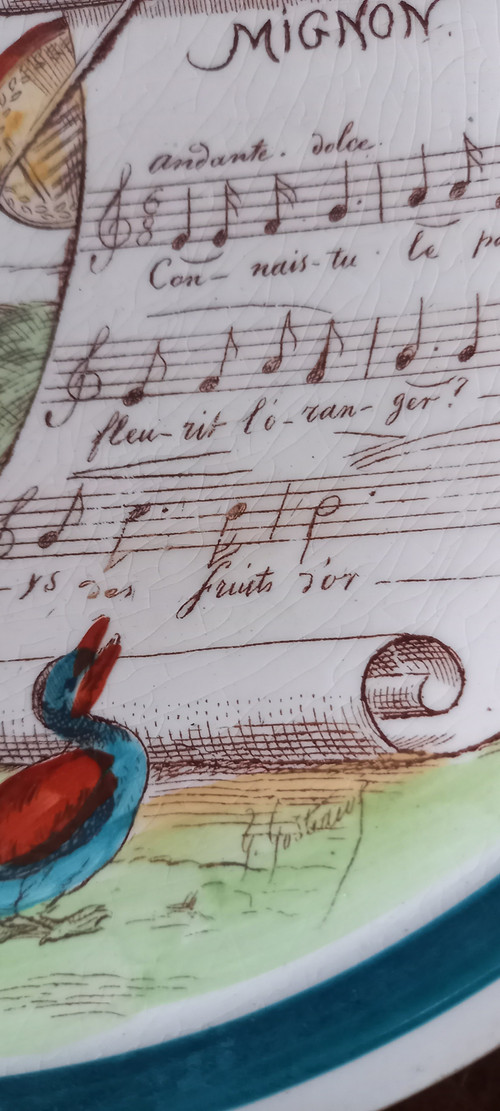 MIGNON.
andante. dolce.
6
8
Con- nais-tu le
fleu-rit l'o-ran-ger?
-ys des fruits d'or